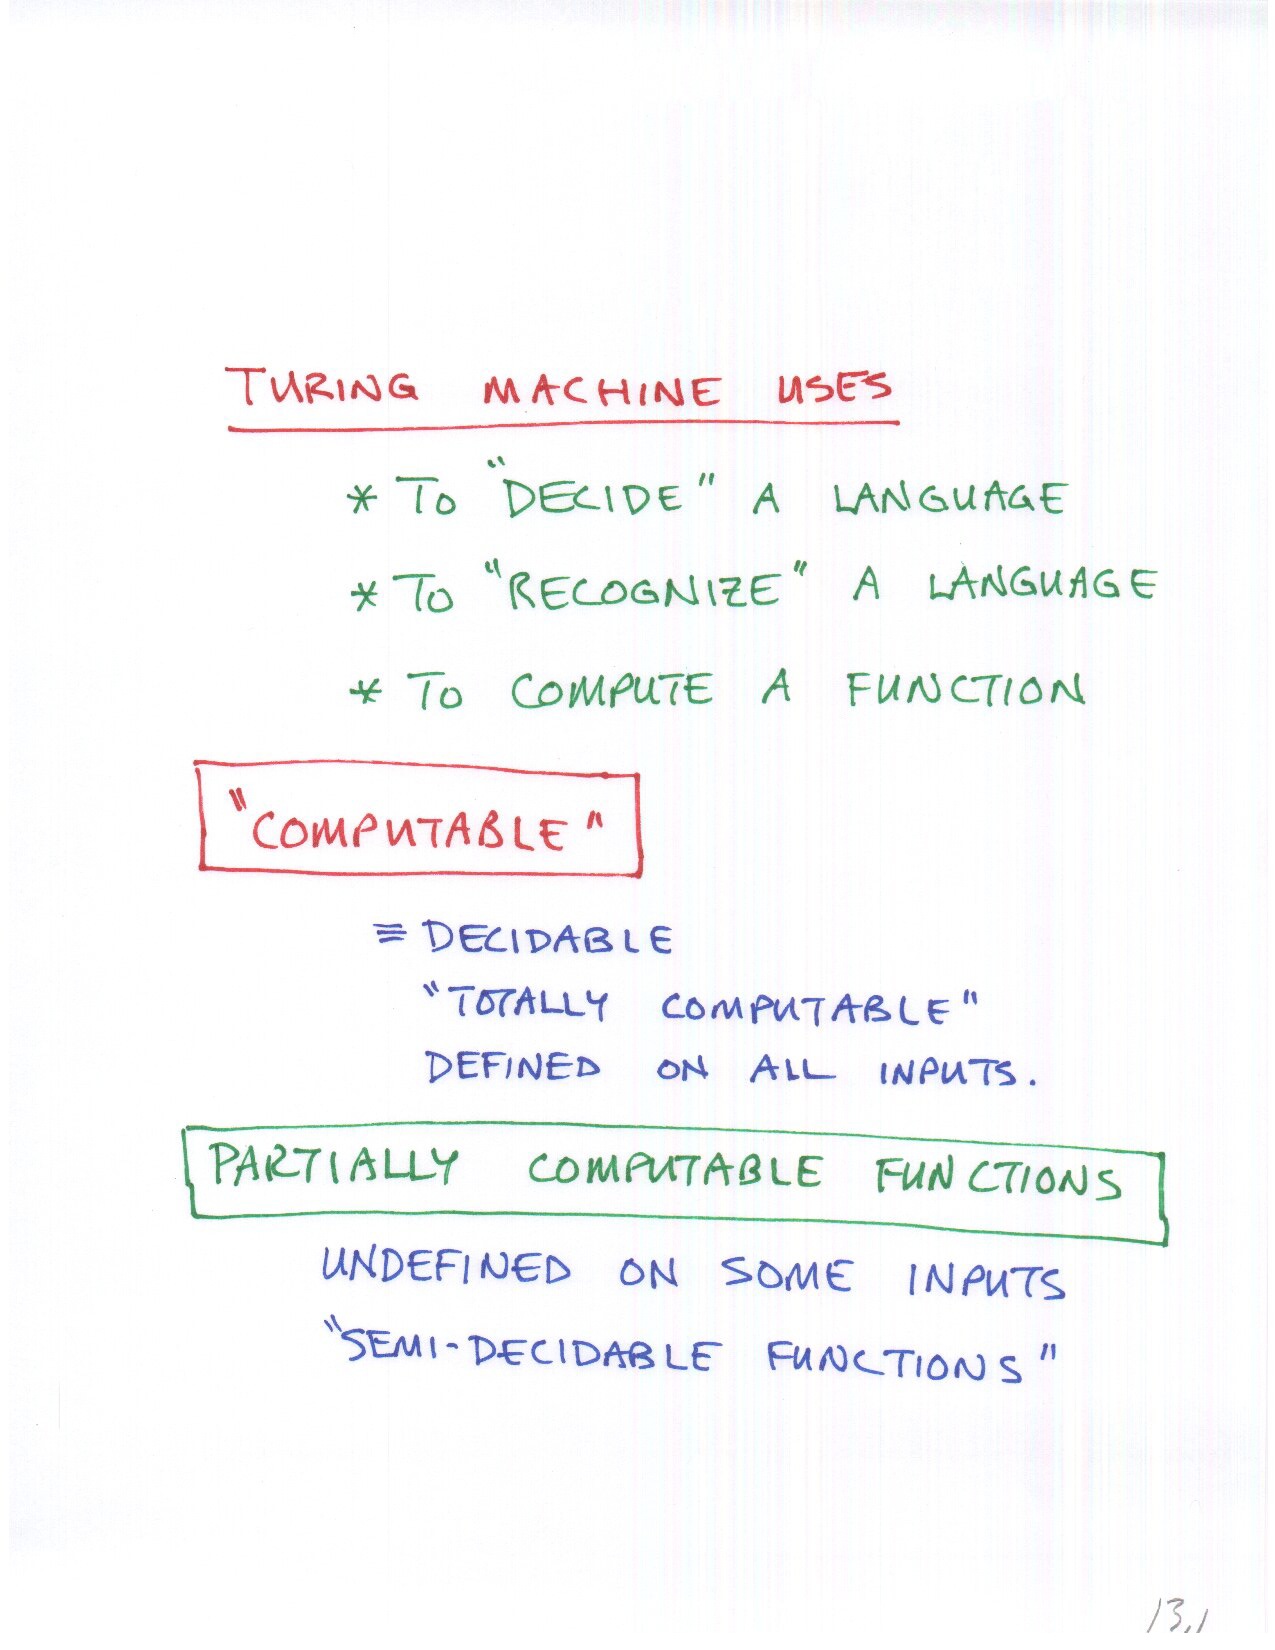 TURING MACHINE USES
* TO "DECIDE" A LANGUAGE
* TO "RECOGNIZE" A LANGUAGE
* TO COMPUTE A FUNCTION
"COMPUTABLE"
≡ DECIDABLE
"TOTALLY COMPUTABLE"
DEFINED ON ALL INPUTS.
PARTIALLY COMPUTABLE FUNCTIONS
UNDEFINED ON SOME INPUTS
"SEMI-DECIDABLE FUNCTIONS"
13.1